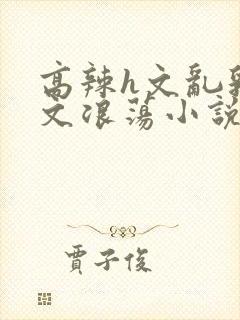 高辣h文亂
文浪蕩小說
賈子俊